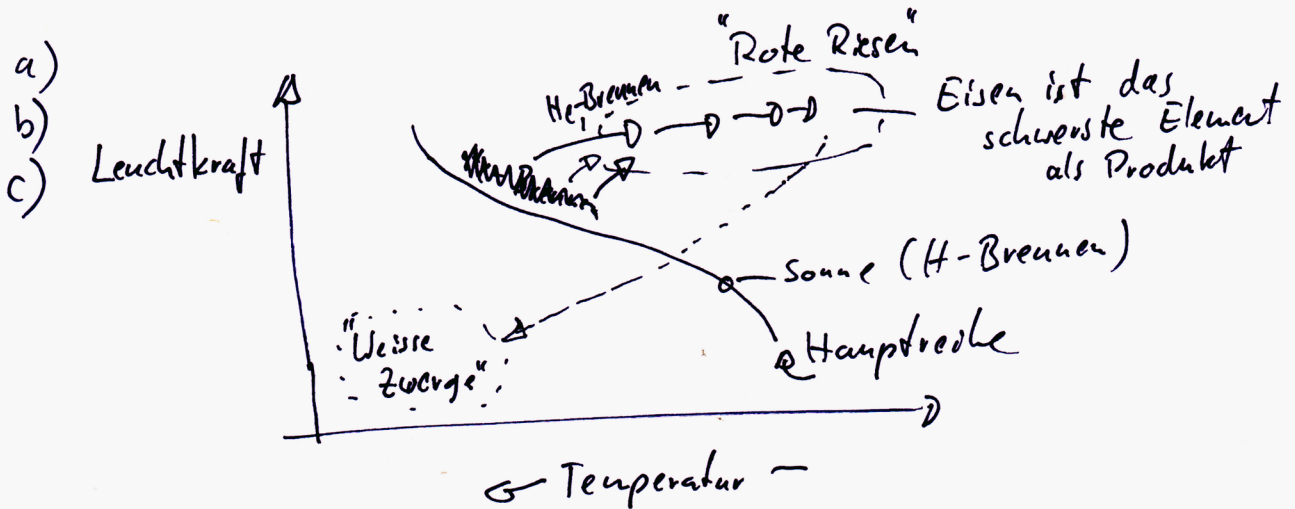 a)
b)
c)
Leuchtkraft
"Rote Riesen"
He-Brennen
Eisen ist das
schwerste Element
als Produkt
Sonne (H-Brennen)
Hauptreihe
"Weisse
Zwerge"
Temperatur